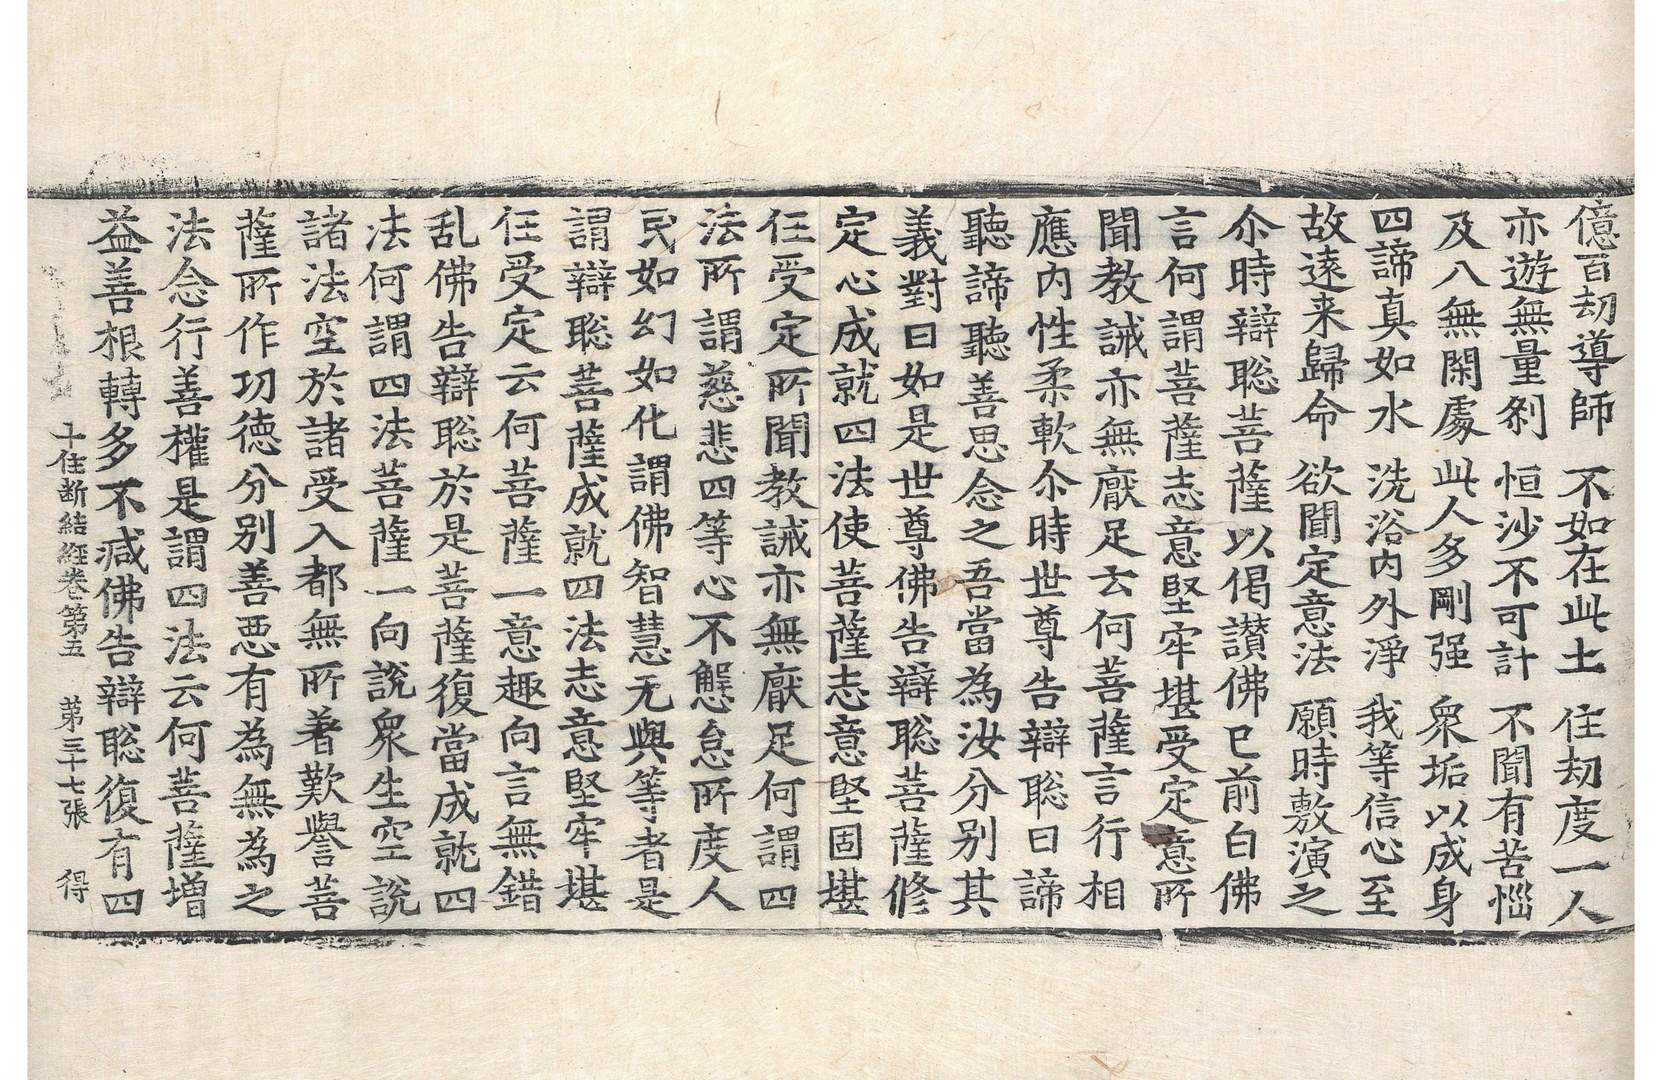 億百劫導師　不如在此土　住劫度一人
亦遊無量刹　恒沙不可計　不聞有苦惱
及八無閑處　此人多剛强　衆垢以成身
四諦真如水　洗浴内外淨　我等信心至
故遠来歸命　欲聞定意法　願時敷演之
尒時辯聡菩薩以偈讃佛已前白佛
言何謂菩薩志意堅牢堪受定意所
聞教誡亦無厭足云何菩薩言行相
應内性柔軟尒時世尊告辯聡曰諦
聽諦聽善思念之吾當為汝分别其
義對曰如是世尊佛告辯聡菩薩修
定心成就四法使菩薩志意堅固堪
任受定所聞教誡亦無厭足何謂四
法所謂慈悲四等心不懈怠所度人
民如幻如化謂佛智慧无與等者是
謂辯聡菩薩成就四法志意堅牢堪
任受定云何菩薩一意趣向言無錯
乱佛告辯聡於是菩薩復當成就四
法何謂四法菩薩一向說衆生空說
諸法空於諸受入都無所著歎譽菩
薩所作功德分别善惡有為無為之
法念行善權是謂四法云何菩薩增
益善根轉多不減佛告辯聡復有四
十住断結經卷第五　第三十七張　得